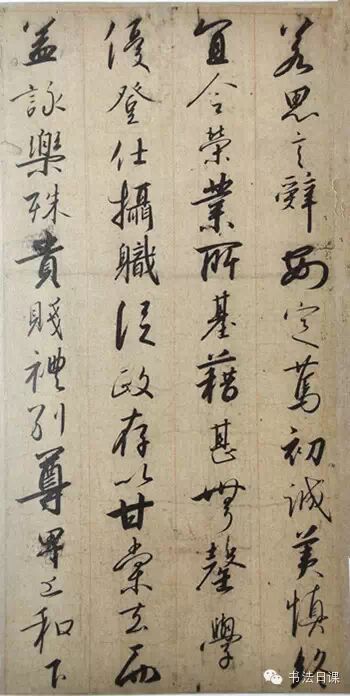 若思言辭安定篤初誠美慎終
宜令榮業所基藉甚無罄學
優登仕攝職從政存以甘棠去而
益詠樂殊貴賤禮別尊卑上和下
书法日课